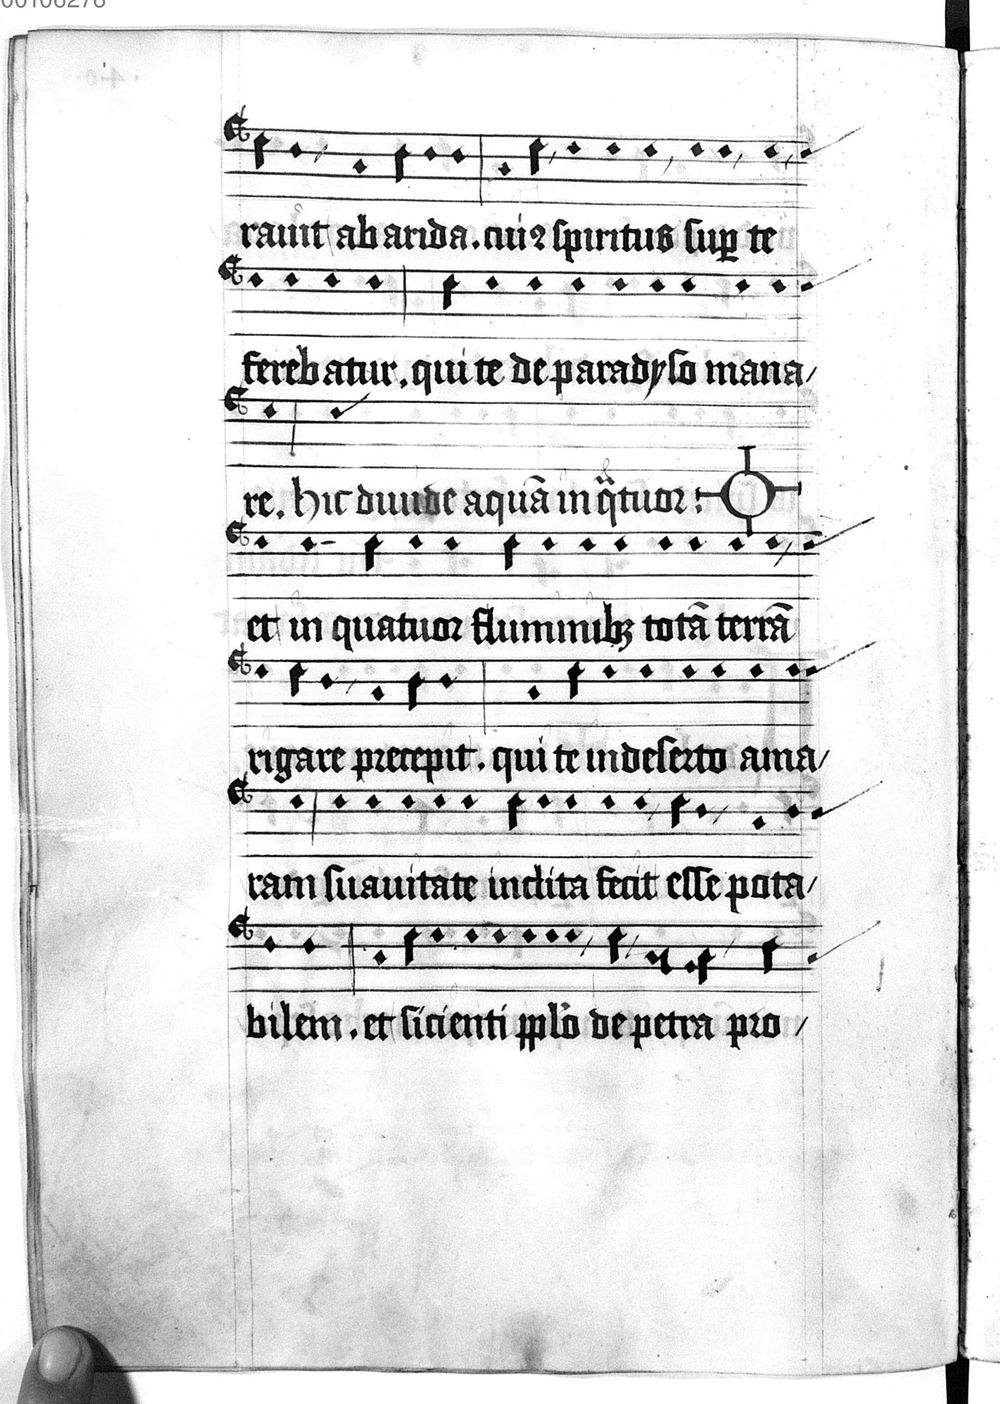 00106276
rauit ab arida. cui9 spiritus sup te
ferebatur. qui te de paradyso mana/
re. hic diuide aquā in q̄tuor:
et in quatuor fluminibꝫ totā terrā
rigare precepit. qui te in deserto ama/
ram suauitate indita fecit esse pota/
bilem. et sicienti pplo de petra pro/